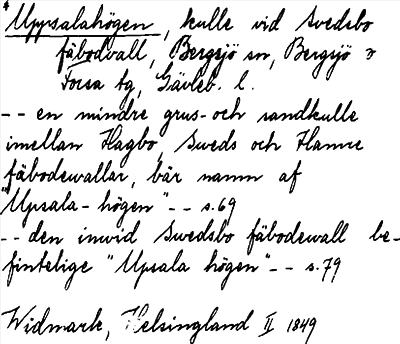 Uppsalahögen, kulle vid Svedsbo
fäbodvall, Bergsjö sn, Bergsjö o
Forsa tg, Gävleb. l.
-- en mindre grus- och sandkulle
imellan Hagbo, Sweds och Hamre
fäbodewallar, bär namn af
"Upsala-högen" -- s. 69
-- den inwid Swedsbo fäbodewall be-
fintelige "Upsala högen" -- s. 79
Widmark, Helsingland II 1849